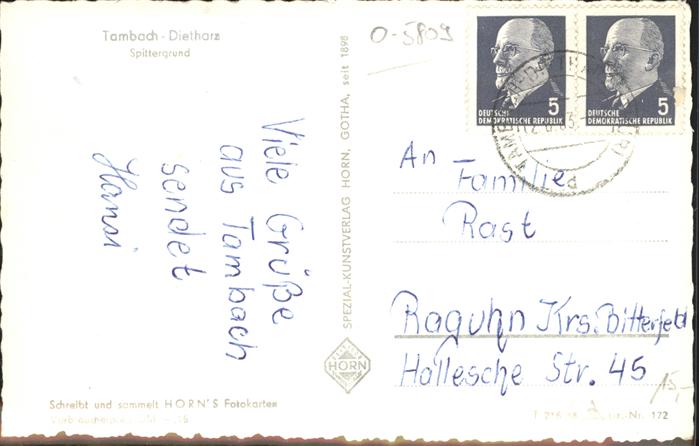 Tambach - Dietharz
Spittergrund
O-5809
5
DEUTSCHE
DEMOKRATISCHE REPUBLIK
5
DEUTSCHE
DEMOKRATISCHE REPUBLIK
Viele Grüße
aus Tambach
sendet
Hansi
SPEZIAL-KUNSTVERLAG HORN, GOTHA, seit 1898
HORN
An Familie
Rast
Raguhn Krs. Bitterfeld
Hallesche Str. 45
15,-
Schreibt und sammelt HORN'S Fotokarten
172